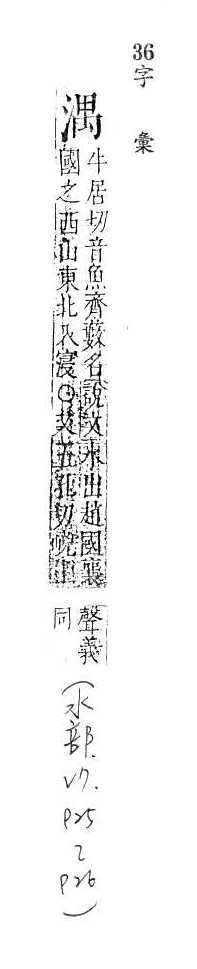 36 字彙
湡
牛居切音魚齊藪名說文水出趙國襄
國之西山東北入寖○又五切
聲義
同
(水部. P25 P26)